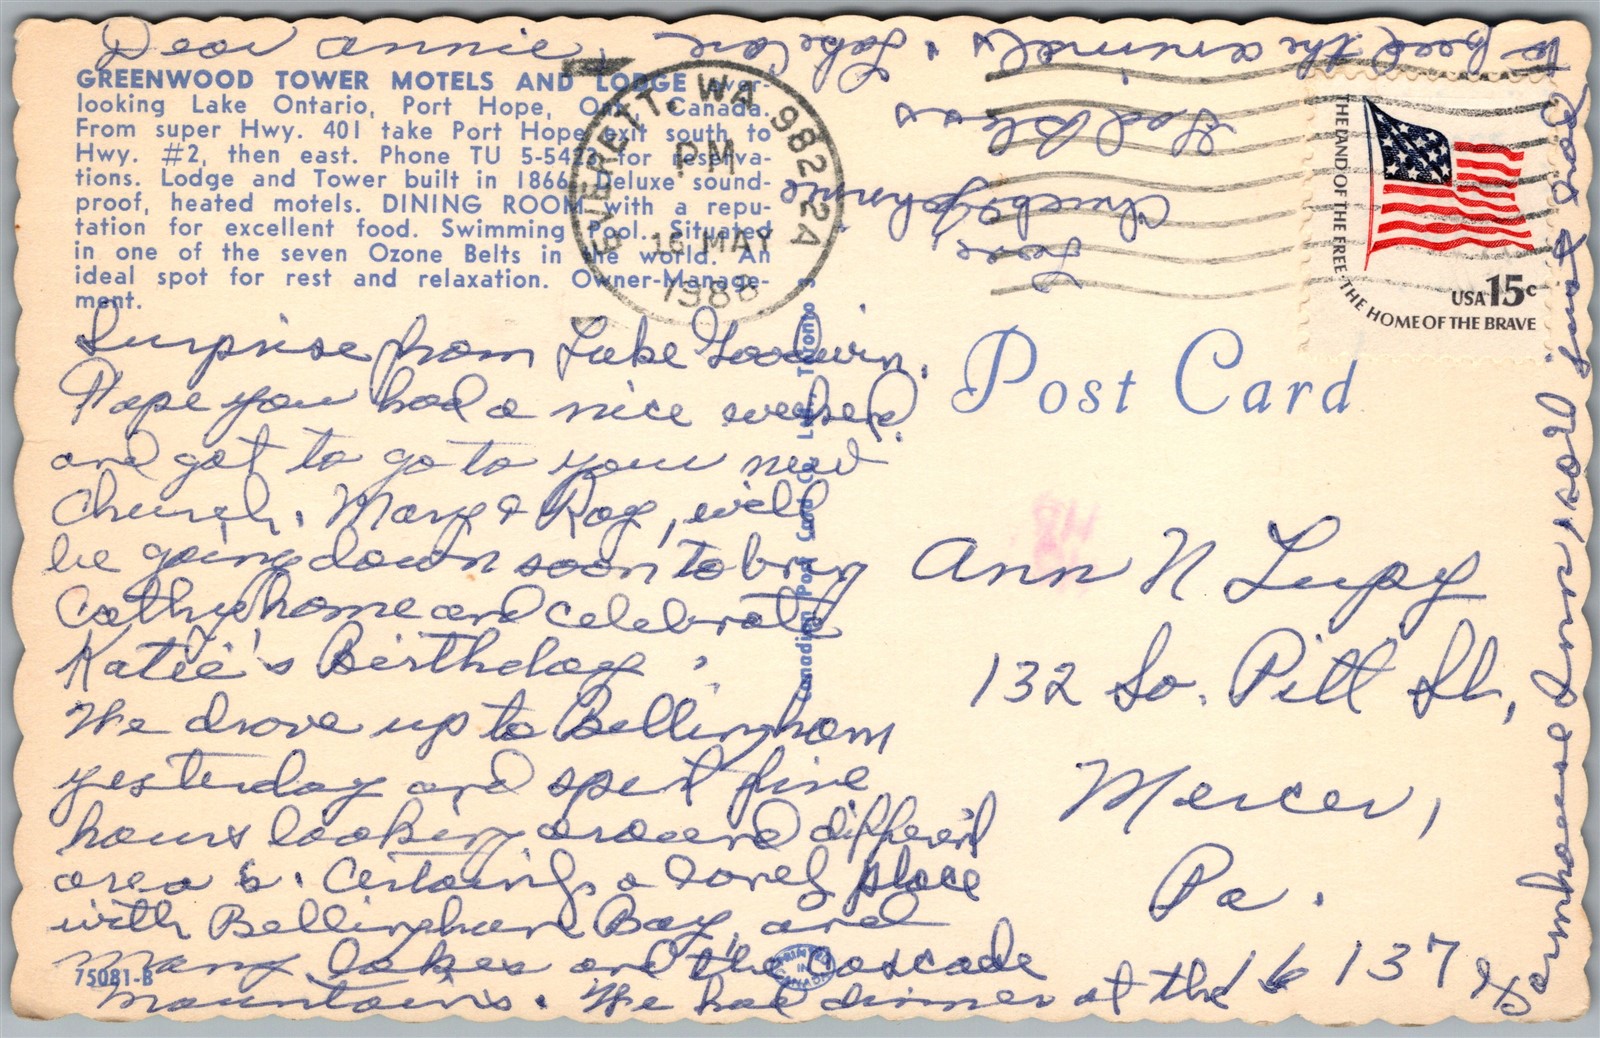 Dear Annie,
GREENWOOD TOWER MOTELS AND LODGE over-
looking Lake Ontario, Port Hope, Ont., Canada.
From super Hwy. 401 take Port Hope exit south to
Hwy. #2, then east. Phone TU 5-5423 for reserva-
tions. Lodge and Tower built in 1866. Deluxe sound-
proof, heated motels. DINING ROOM with a repu-
tation for excellent food. Swimming Pool. Situated
in one of the seven Ozone Belts in the world. An
ideal spot for rest and relaxation. Owner-Manage-
ment.
Surprise from Lake Goodwin.
Hope you had a nice weekend
and got to go to your new
Church. Mary & Roy, will
be going down soon to bring
Cathy home and celebrate
Katie's Birthday.
We drove up to Bellingham
yesterday and spent five
hours looking around different
areas. Certainly a lovely place
with Bellingham Bay, and
many lakes and the Cascade
Mountains. We had dinner at the
Farmhouse Inn,
to feed the animals. Take Care
God Bless
Love,
Chuck & Johnnie
75081-B
Canadian Post Card Co. Ltd., Toronto 3
PRINTED IN CANADA
EVERETT, WA 982 22A
PM
16 MAY
1988
THE LAND OF THE FREE·THE HOME OF THE BRAVE
USA 15c
Post Card
Ann N Lupy
132 So. Pitt St,
Mercer,
Pa.
16137